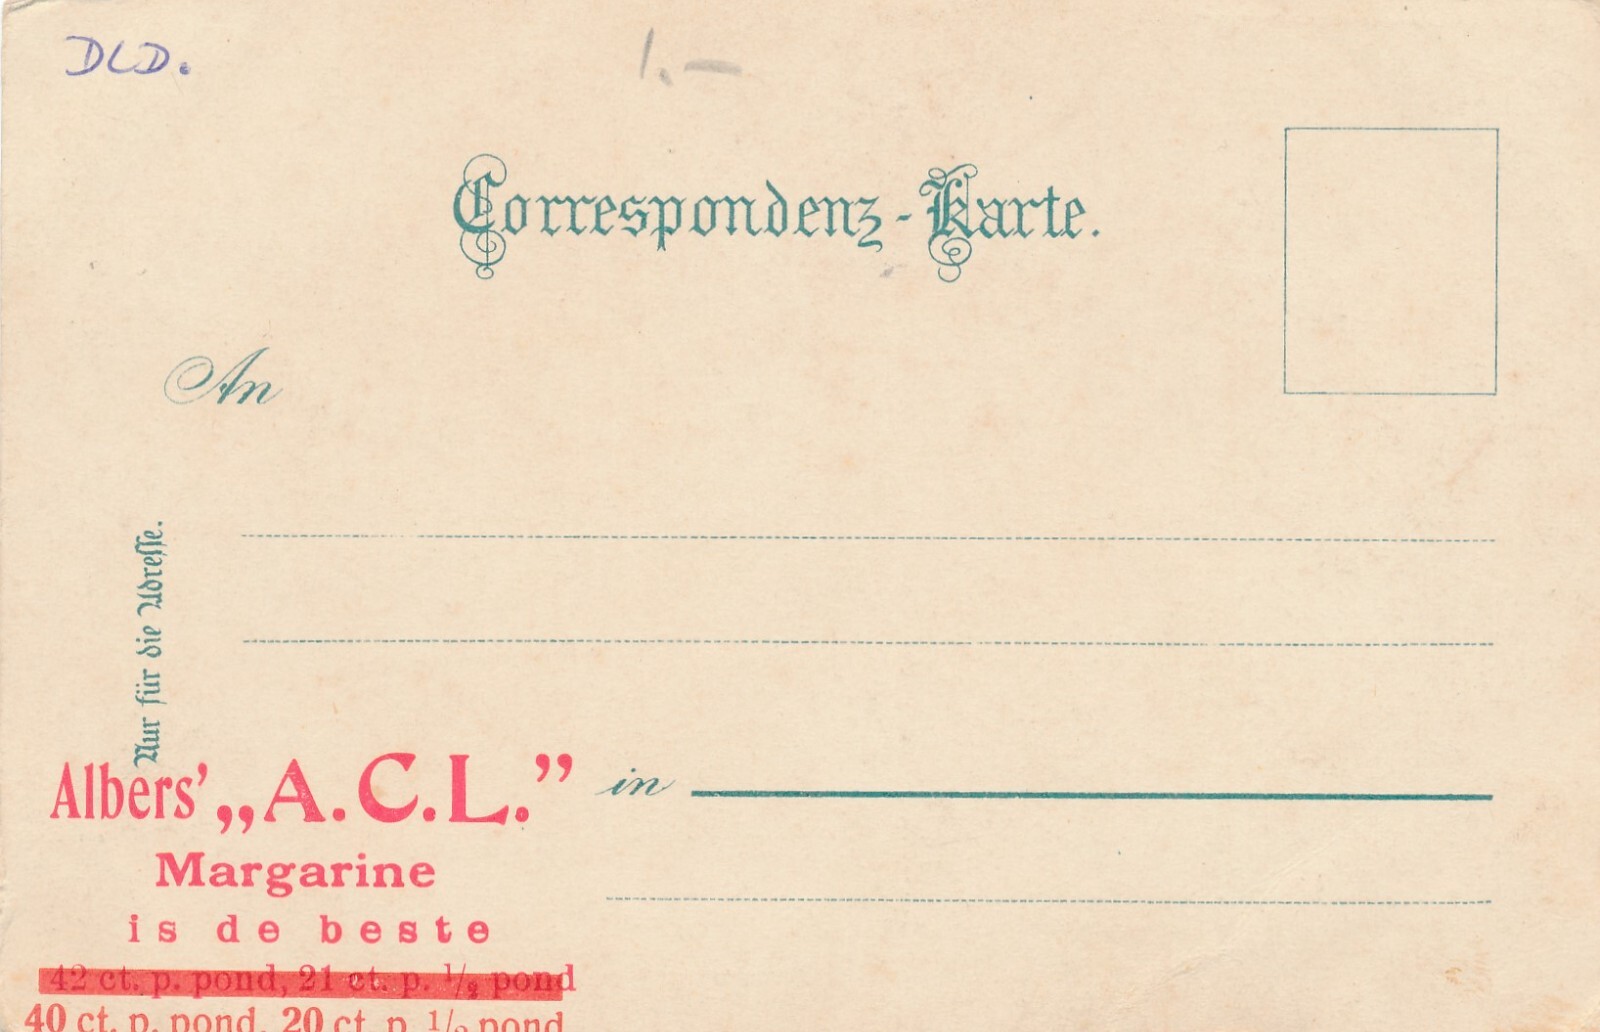 DLD.
1.—
Correspondenz-Karte.
An
Nur für die Adresse.
in
Albers' „A.C.L.”
Margarine
is de beste
42 ct. p. pond, 21 ct. p. 1/2 pond
40 ct. p. pond, 20 ct. p. 1/2 pond